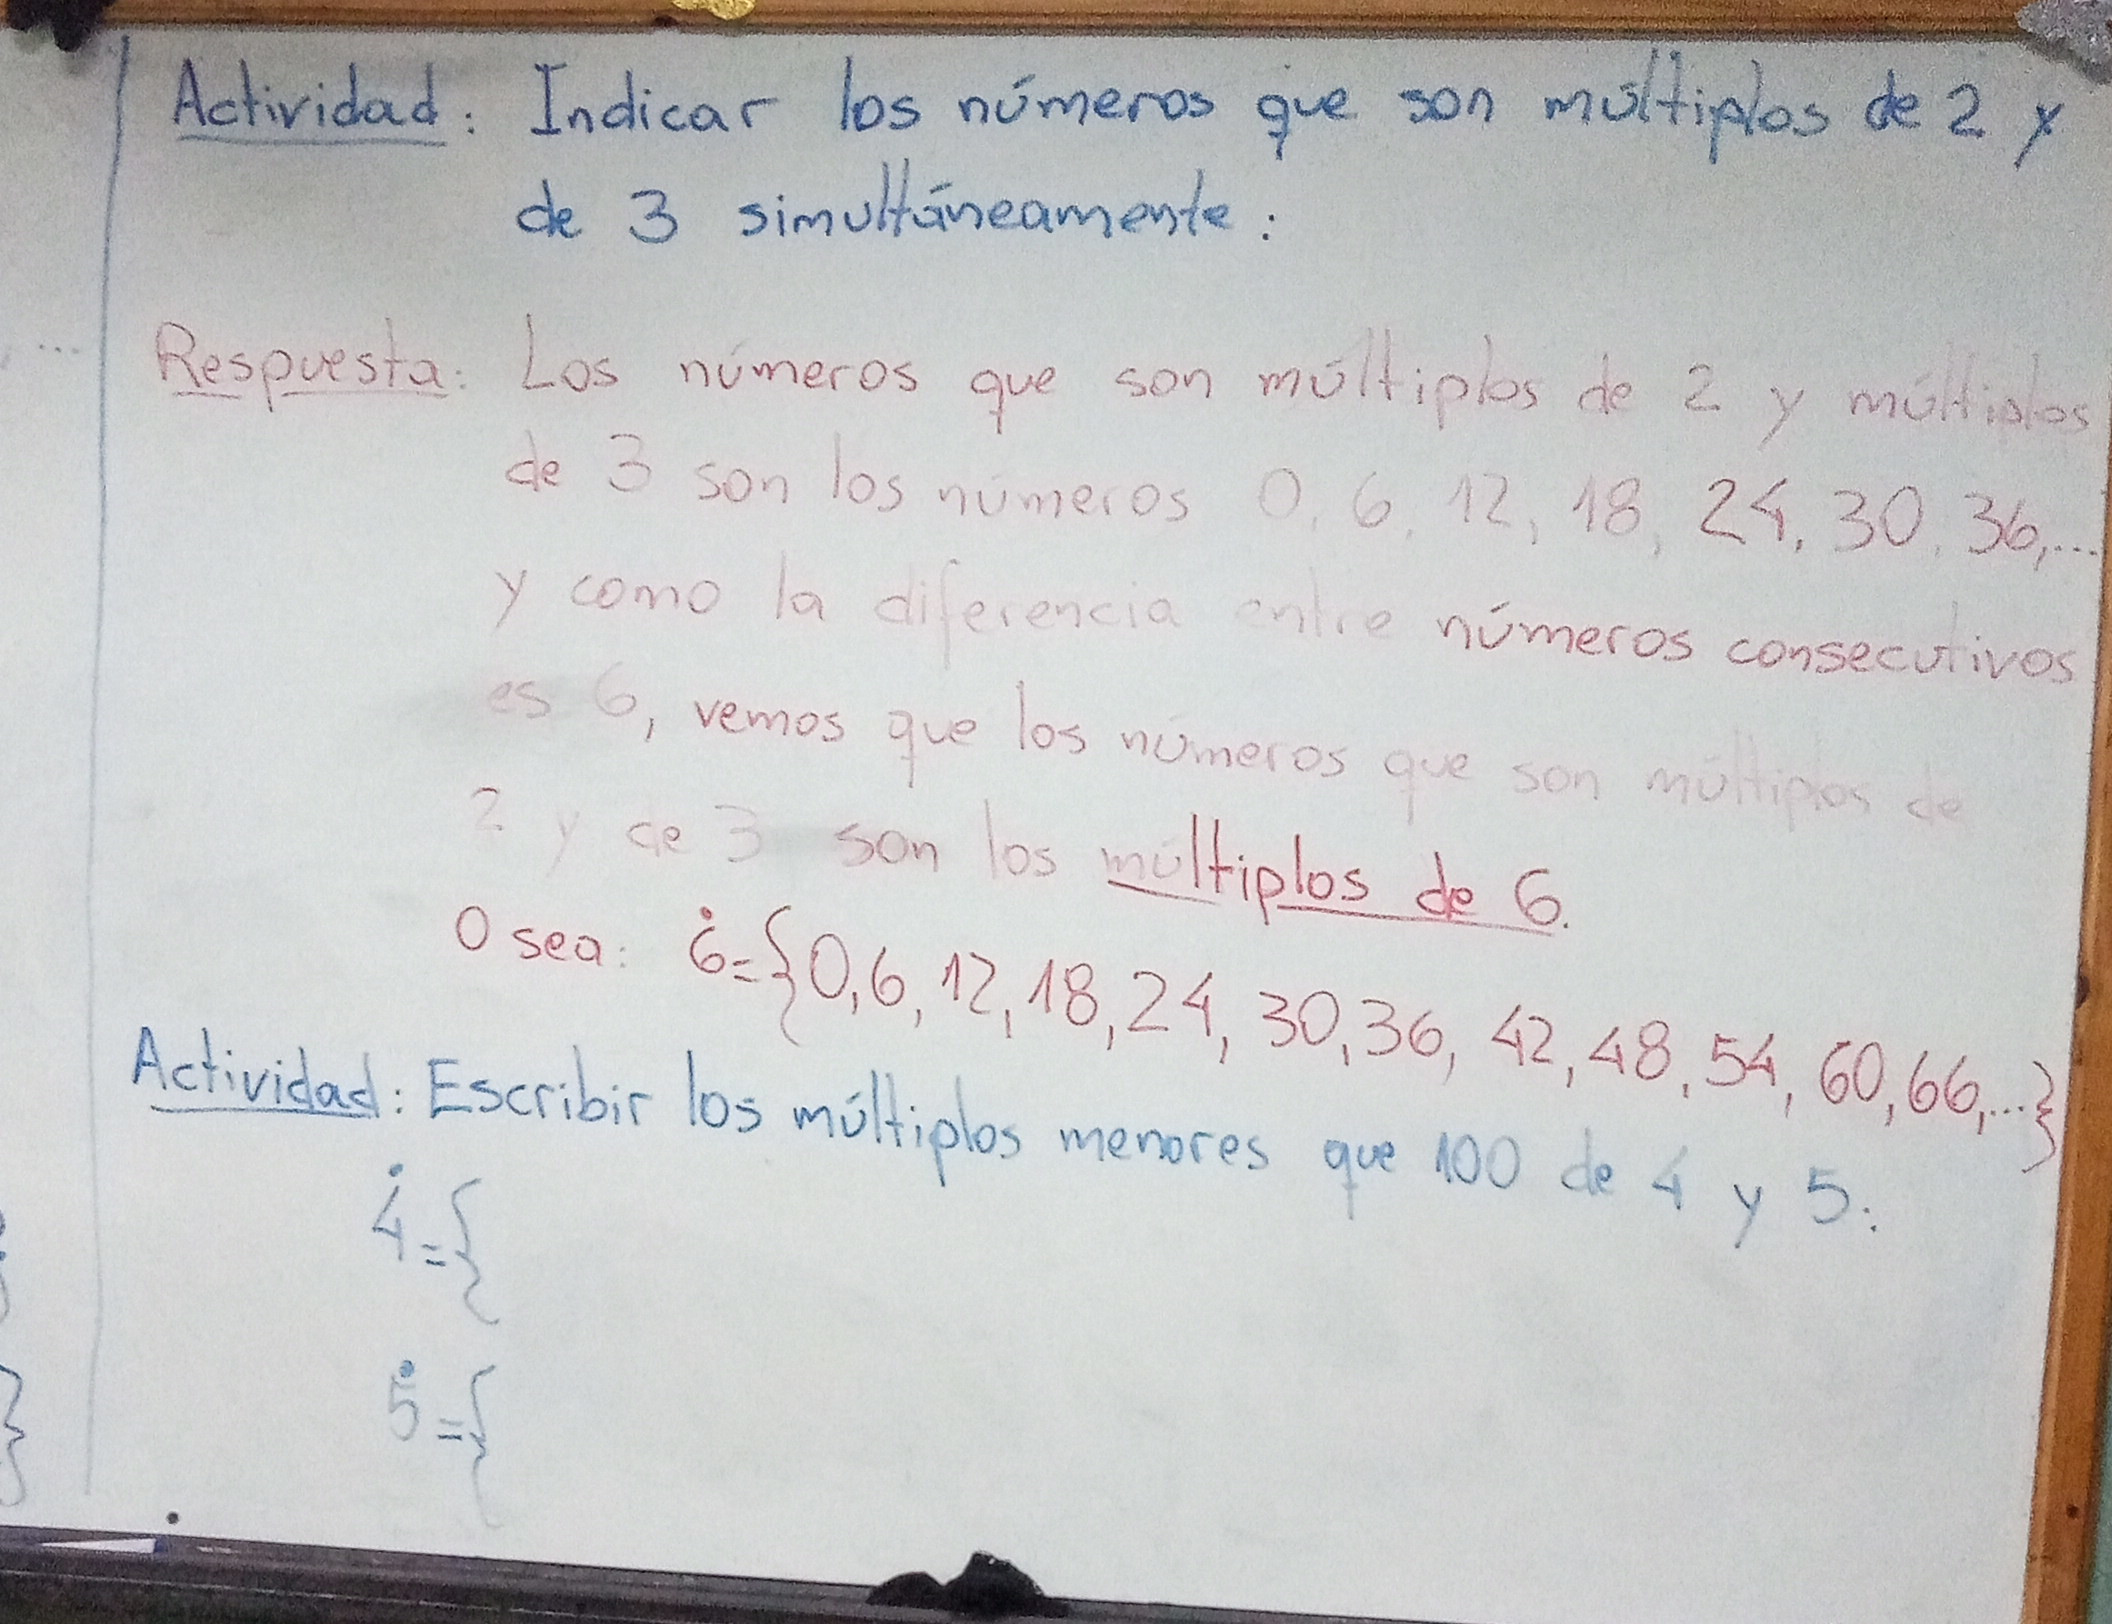 Actividad: Indicar los números que son múltiplos de 2 y
de 3 simultáneamente:
...
Respuesta: Los números que son múltiplos de 2 y múltiplos
de 3 son los números 0, 6, 12, 18, 24, 30, 36,...
y como la diferencia entre números consecutivos
es 6, vemos que los números que son múltiplos de
2 y de 3 son los múltiplos de 6.
O sea: 6̇={0,6,12,18,24,30,36,42,48,54,60,66,...}
Actividad: Escribir los múltiplos menores que 100 de 4 y 5:
4̇={
5̇={
}